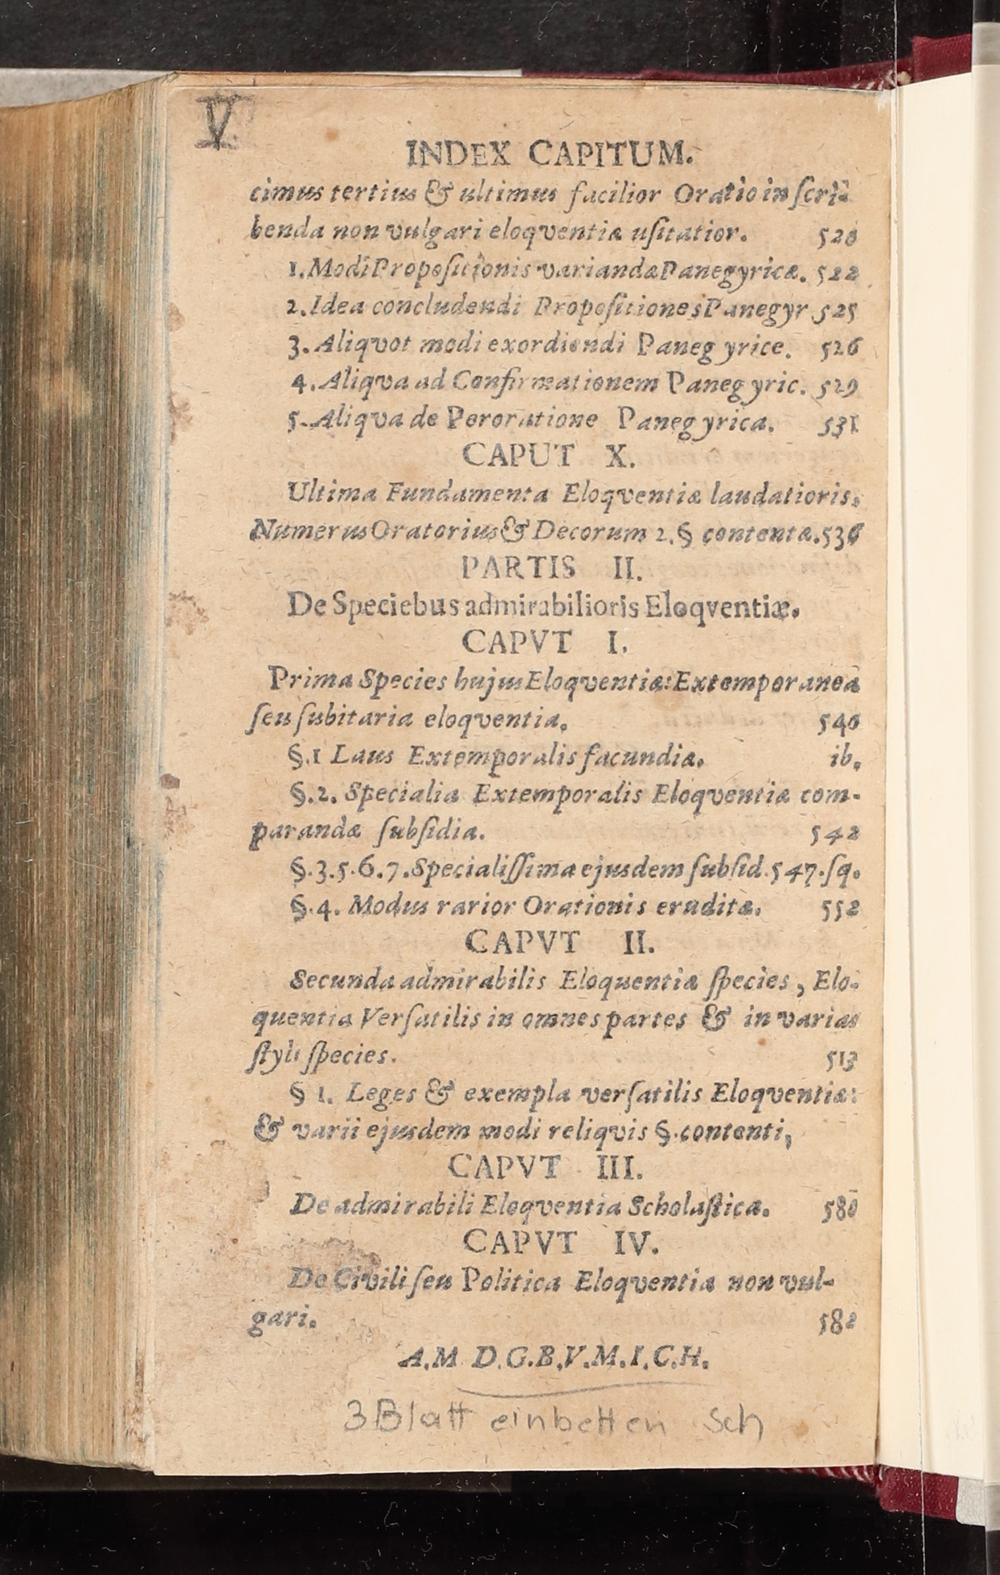 V
INDEX CAPITUM.
cimus tertius & ultimus facilior Oratio in ſcri-
benda non vulgari eloqventiæ uſitatior. 520
1. Modi Propoſitionis variandæ Panegyricæ. 522
2. Idea concludendi Propoſitiones Panegyr 525
3. Aliqvot modi exordiendi Panegyrice. 526
4. Aliqva ad Confirmationem Panegyric. 529
5. Aliqva de Peroratione Panegyrica. 531
CAPUT X.
Ultima Fundamenta Eloqventiæ laudatioris,
Numerus Oratorius & Decorum 2. § contenta. 536
PARTIS II.
De Speciebus admirabilioris Eloqventiæ.
CAPVT I.
Prima Species hujus Eloqventiæ: Extemporanea
ſeu ſubitaria eloqventia. 540
§.1 Laus Extemporalis facundiæ. ib.
§.2. Specialia Extemporalis Eloqventiæ com-
parandæ ſubſidia. 542
§.3.5.6.7. Specialiſſima ejusdem ſubſid. 547.ſq.
§.4. Modus rarior Orationis eruditæ. 552
CAPVT II.
Secunda admirabilis Eloquentiæ ſpecies, Elo-
quentia Verſatilis in omnes partes & in varias
ſtyli ſpecies. 513
§ 1. Leges & exempla verſatilis Eloqventiæ:
& varii ejusdem modi reliqvis §. contenti,
CAPVT III.
De admirabili Eloqventia Scholaſtica. 580
CAPVT IV.
De Civili ſeu Politica Eloqventia non vul-
gari. 582
A.M D.G.B.V.M.I.C.H.
3 Blatt einbetten Sch